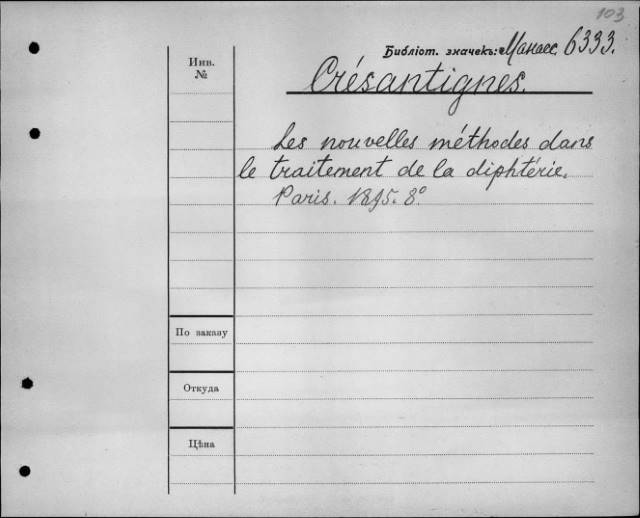 103
Библіот. значекъ: Манасс. 6333.
Инв.
№
Crésantignes.
Les nouvelles méthodes dans
le traitement de la diphtérie.
Paris. 1895. 8°
По заказу
Откуда
Цѣна